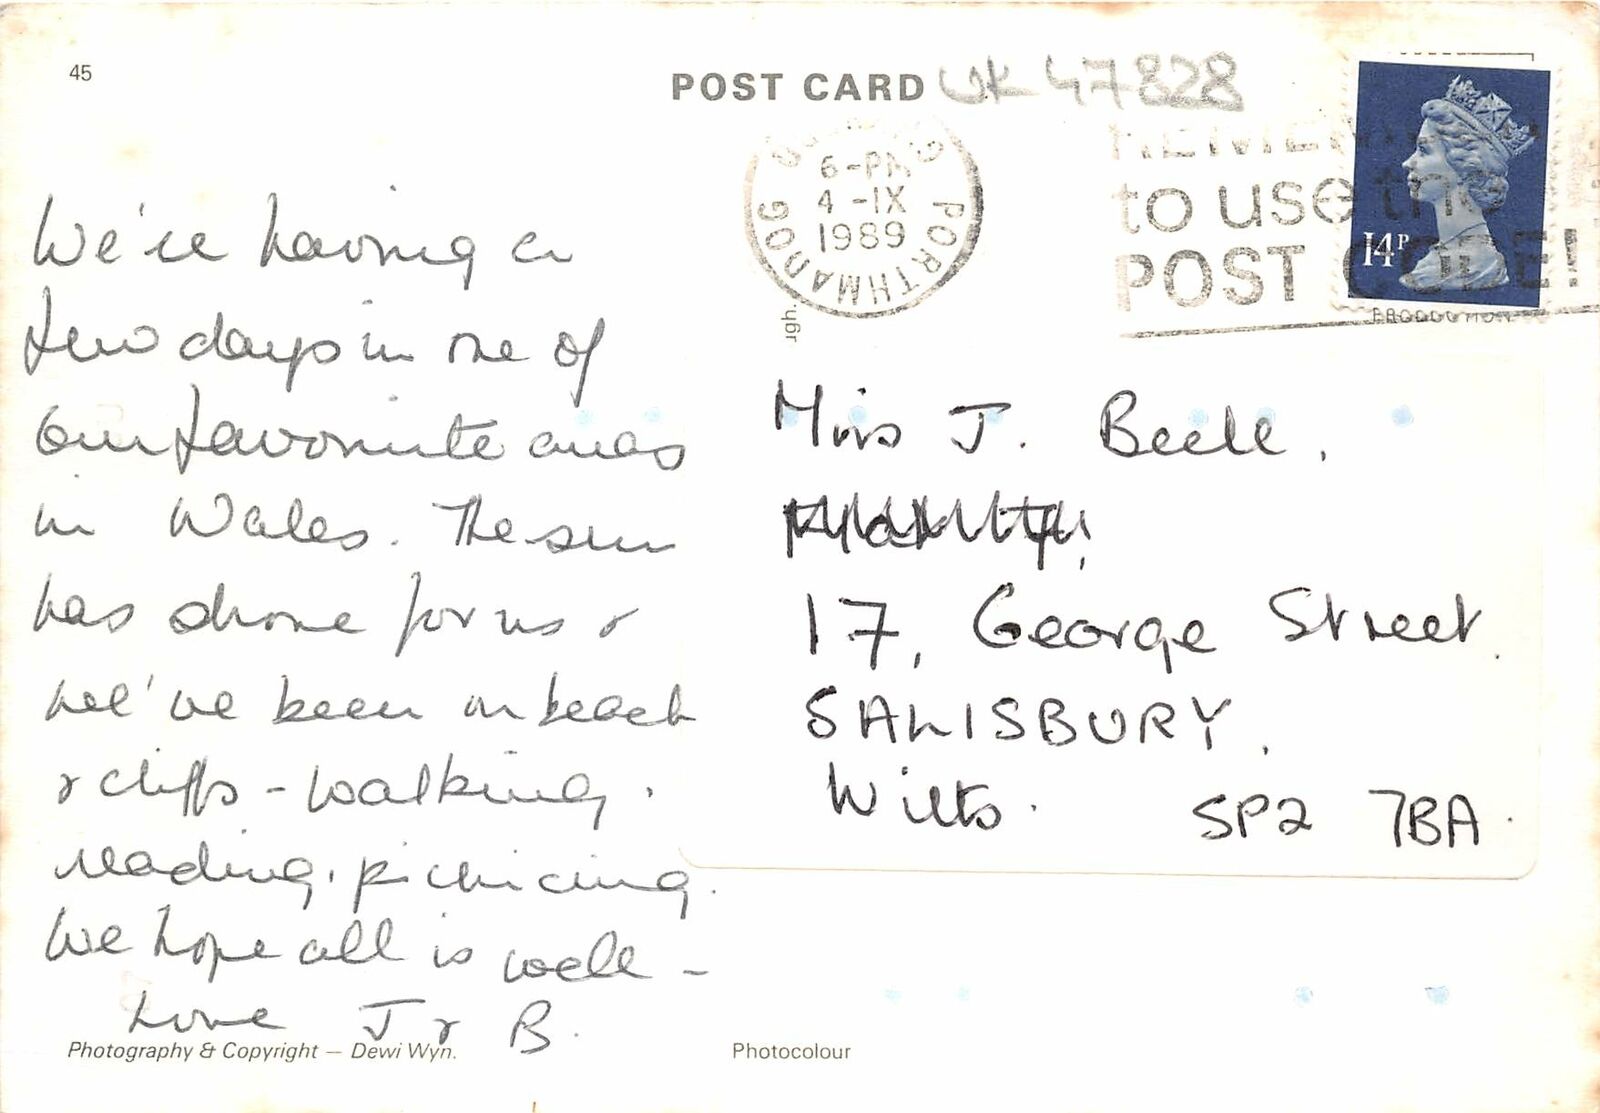 45
POST CARD UK 47828
6-PM
4-IX
1989
PORTHMADOG
to use the
POST CODE!
14P
We're having a
few days in one of
our favourite areas
in Wales. The sun
has shone for us &
we've been on beach
& cliffs - walking.
reading. picnicing.
We hope all is well -
Love J & B.
Miss J. Beell.
17, George Street.
SALISBURY.
Wilts. SP2 7BA.
Photography & Copyright — Dewi Wyn.
Photocolour